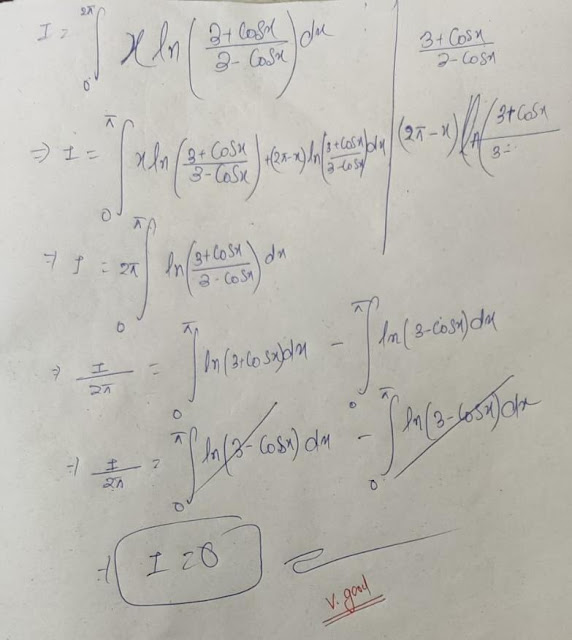 I = ∫₀^{2π} x ln((3+Cosx)/(3-Cosx)) dx
(3+Cosx)/(3-Cosx)
⇒ I = ∫₀^π x ln((3+Cosx)/(3-Cosx)) + (2π-x) ln((3+Cosx)/(3-Cosx)) dx
(2π-x) ((3+Cosx)/(3-
⇒ I = 2π ∫₀^π ln((3+Cosx)/(3-Cosx)) dx
⇒ I/2π = ∫₀^π ln(3+Cosx)dx - ∫₀^π ln(3-Cosx)dx
⇒ I/2π = ∫₀^π ln(3-Cosx)dx - ∫₀^π ln(3-Cosx)dx
⇒ I=0
v. good